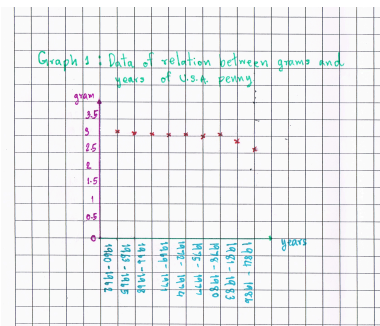 Graph 1 : Data of relation between grams and
years of U.S.A. penny
gram
3.5
3
2.5
2
1.5
1
0.5
0
years
1960 - 1962
1963 - 1965
1966 - 1968
1969 - 1971
1972 - 1974
1975 - 1977
1978 - 1980
1981 - 1983
1984 - 1986